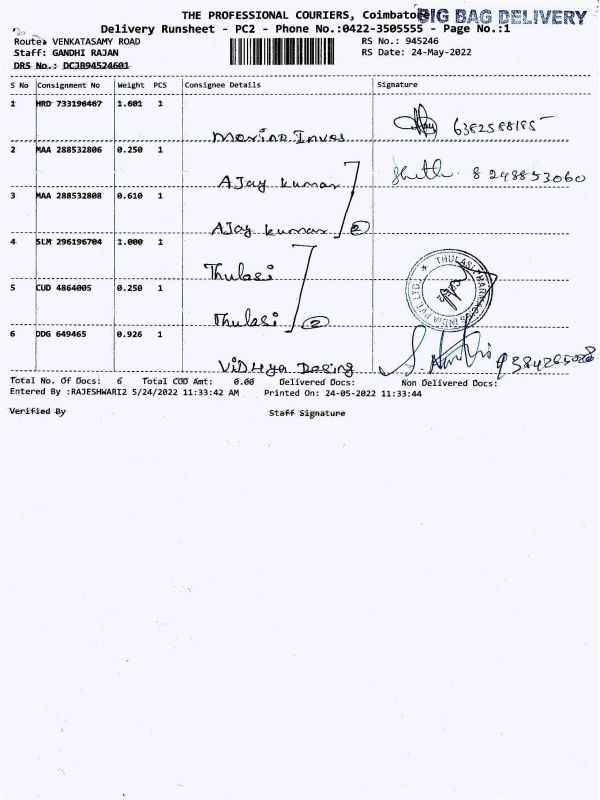 THE PROFESSIONAL COURIERS, Coimbatore
BIG BAG DELIVERY
Delivery Runsheet - PC2 - Phone No.:0422-3505555 - Page No.:1
Route: VENKATASAMY ROAD RS No.: 945246
Staff: GANDHI RAJAN RS Date: 24-May-2022
DRS No.: DCJB94524601
S No Consignment No Weight PCS Consignee Details Signature
1 HRD 733196467 1.601 1
6382588185
2 MAA 288532806 0.250 1
AJay kumar 8248853060
3 MAA 288532808 0.610 1
AJay kumar 2
4 SLM 296196704 1.000 1
Thulasi
THULASI PHARMACIES INDIA PVT LTD.
5 CUD 4864005 0.250 1
Thulasi 2
6 DDG 649465 0.926 1
ViDHya
Total No. Of Docs: 6 Total COD Amt: 0.00 Delivered Docs: Non Delivered Docs:
Entered By :RAJESHWARI2 5/24/2022 11:33:42 AM Printed On: 24-05-2022 11:33:44
Verified By Staff Signature